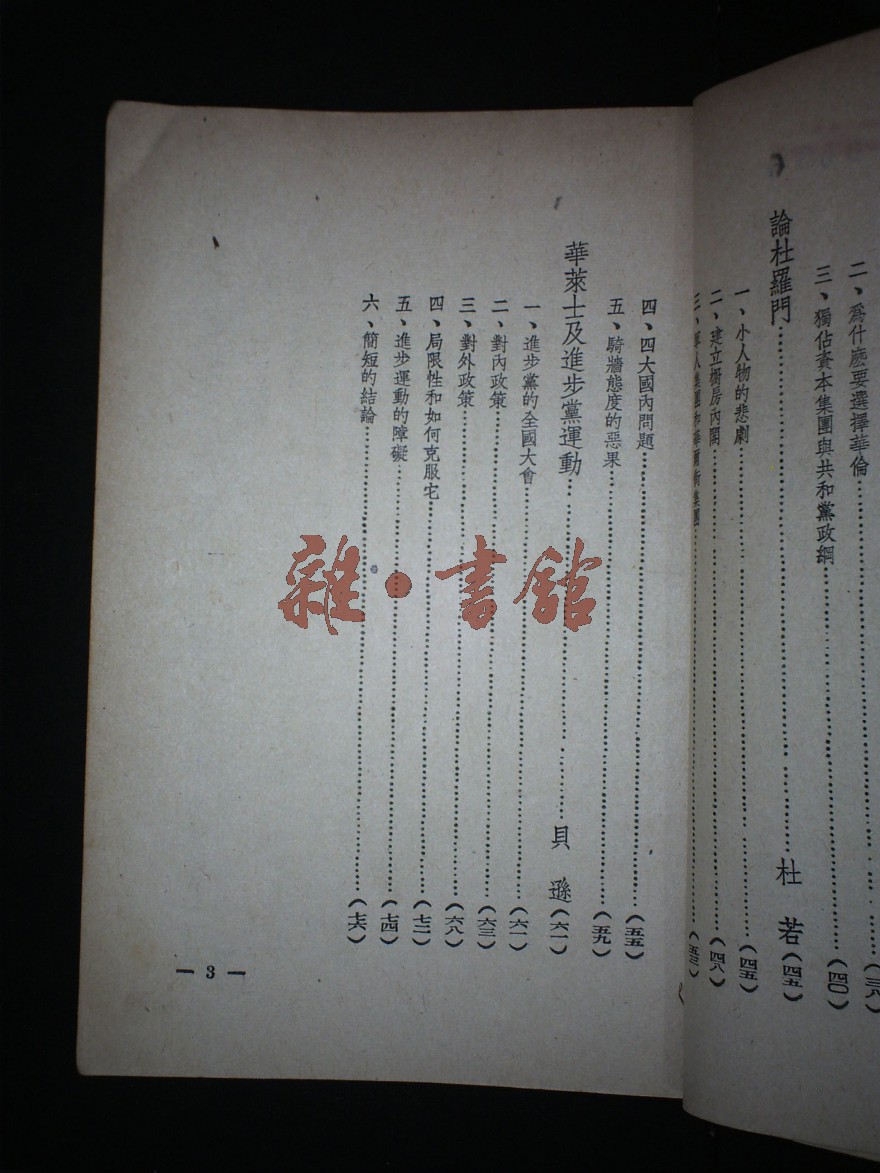 二、爲什麽要選擇華倫……（三八）
三、獨佔資本集團與共和黨政綱……（四〇）
論杜羅門……杜　若（四五）
一、小人物的悲劇……（四五）
二、建立櫥房內閣……（四八）
三、軍人集團和華爾街集團……（五三）
四、四大國內問題……（五五）
五、騎牆態度的惡果……（五九）
華萊士及進步黨運動……貝　遜（六一）
一、進步黨的全國大會……（六一）
二、對內政策……（六三）
三、對外政策……（六八）
四、局限性和如何克服它……（七二）
五、進步運動的障礙……（七四）
六、簡短的結論……（七六）
— 3 —
雜·書館